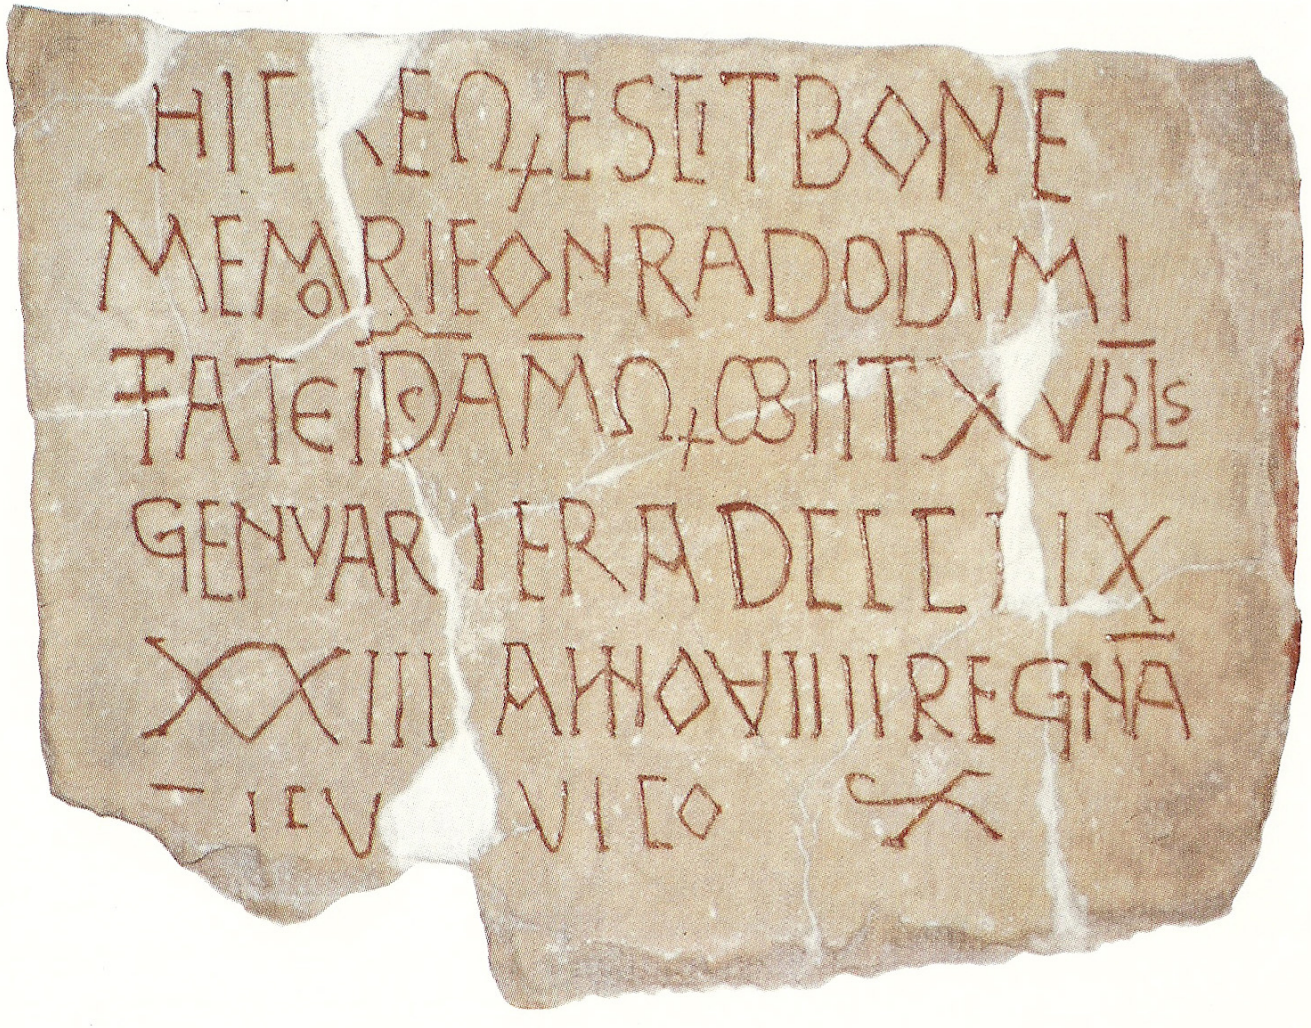 HIC REQESCIT BONE
MEMORIE ONRADO DIMI
TATE IDAM Q OBIIT XV KLS
GENVARI ERA DCCC IIX
XXIII ANNO VIIII REGNA
VICO